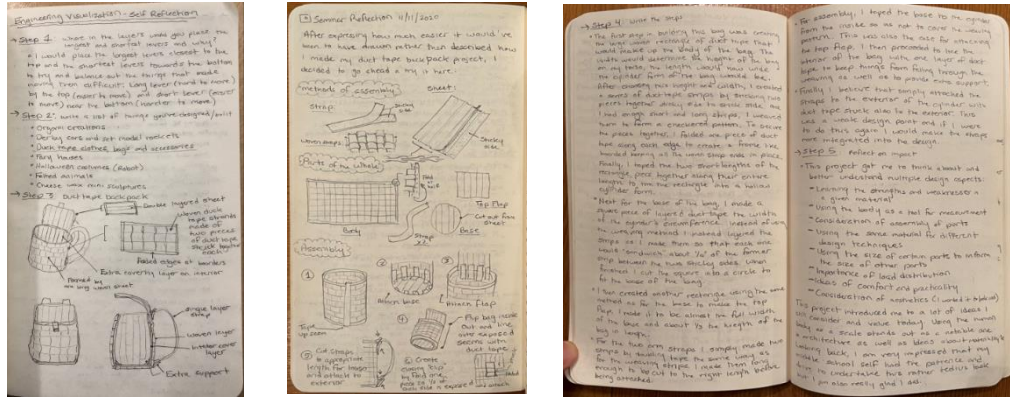 Engineering Visualization - Self Reflection
→ Step 1: Where in the layers would you place the
longest and shortest levers and why?
• I would place the longest levers closest to the
top and the shortest levers towards the bottom
to try and balance out the things that made
moving them difficult: Long lever (hard to move)
by the top (easier to move) and short lever (easier
to move) near the bottom (harder to move)
→ Step 2: Write a list of things you've designed/built
• Origami creations
• Derby cars and model rockets
• Duct tape clothes, bags and accessories
• Fairy houses
• Halloween costumes (Robot)
• Felted animals
• Cheese wax mini sculptures
→ Step 3: Duct tape backpack
Double layered sheet
Woven duct
tape strands
made of
two pieces
of duct tape
stuck together
Folded edges at borders
Extra covering layer on interior
Formed by
one long woven sheet
single layer
strap
woven layer
inner cover
layer
Extra support
Seminar Reflection 11/11/2020
After expressing how much easier it would've
been to have drawn rather than described how
I made my duct tape backpack project, I
decided to go ahead and try it here:
methods of assembly
Strap
Sheet:
Sticky
side
woven straps
Sticky
side
Parts of the whole
Fold
in
half
Top Flap
Body
Strap
x2
Cut out from
sheet
Base
Assembly
① ② ③
Attach base
Attach Flap
Tape up
seam
④
Flip bag inside
out and line
over exposed
seams with
duct tape
⑤ Cut straps
to appropriate
length for large
and attach to
exterior
⑥ Create
→ Step 4: Write the steps
• The first step in building this bag was creating
the large woven rectangle of duct tape that
would make up the body of the bag. The
width would determine the height of the bag
the cylinder form of the bag would be.
After choosing this height and width, I created
a series of duct tape straps by sticking two
pieces together sticky side to sticky side. Once
I had enough short and long strips, I weaved
them to form a checkered pattern. To secure
the pieces together, I folded one piece of duct
tape along each edge to create a frame like
Finally, I taped the two short heights of the
rectangle piece together along their entire
length to turn the rectangle into a hollow
cylinder form.
• Next for the base of the bag, I made a
square piece of layered duct tape the width
of the cylinder's circumference. Instead of using
the weaving method I instead layered the
strips so I made them so that each one
strip between the two sticky sides. When
finished I cut the square into a circle to
fit the base of the bag.
• I then created another rectangle using the same
method as for the base to make the top
flap. I made it to be almost the full width
of the base and about 1/3 the length of the
bag in length.
• For the two arm straps I simply made two
strips by folding tape the same way as
for the weaving strips. I made them long
enough to be cut to the right length before
being attached.
• For assembly, I taped the base to the cylinder
from inside so as not to cover the weaving
pattern. This was also the case for attaching
the top flap. I then proceeded to line the
interior of the bag with one layer of duct
tape to keep things from falling through the
weaving as well as to provide extra support.
• Finally, I believe that I simply attached the
straps to the exterior of the cylinder with
duct tape stuck also to the exterior. This
was a weak design point and if I were
to do this again I would make the straps
more integrated into the design.
→ Step 5: Reflect on impact
• This project got me to think about and
better understand multiple design aspects:
- Learning the strengths and weaknesses of
a given material
- Using the body as a tool for measurement
- Consideration of assembly of parts
- Using the same material for different
design techniques
- Using the size of certain parts to inform
the size of other parts
- Importance of load distribution
- Ideas of comfort and practicality
- Consideration of aesthetics
This project introduced me to a lot of ideas I
still consider and value today. Using the human
body as a scale stands out as a notable one
in architecture as well as ideas about materiality.
Looking back, I am very impressed that my
middle school self had the patience and
drive to undertake this rather tedious task
but I'm also really glad I did.